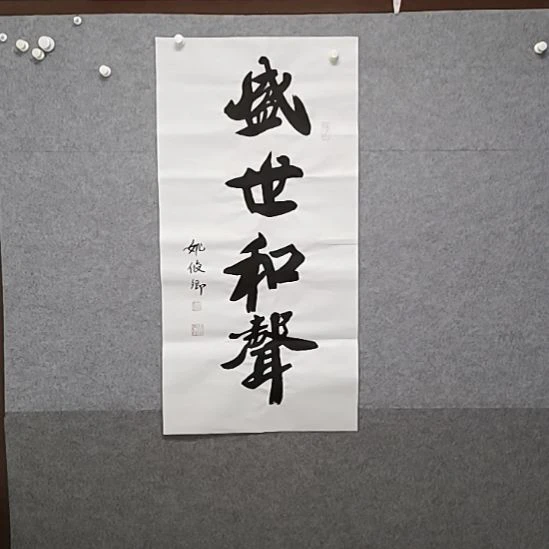 盛世和聲
姚俊卿